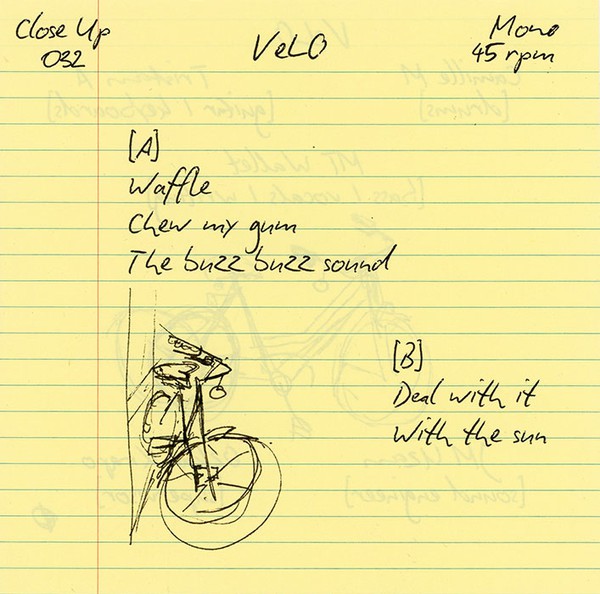 Close Up
032
VeLO
Mono
45 rpm
[A]
Waffle
Chew my gum
The buzz buzz sound
[B]
Deal with it
With the sun